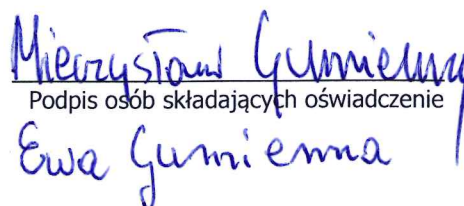 Mieczysław Gumienny
Podpis osób składających oświadczenie
Ewa Gumienna